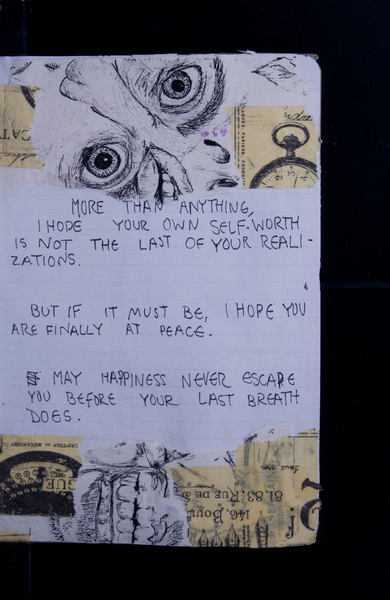 MORE THAN ANYTHING,
I HOPE YOUR OWN SELF-WORTH
IS NOT THE LAST OF YOUR REALI-
ZATIONS.
BUT IF IT MUST BE, I HOPE YOU
ARE FINALLY AT PEACE.
MAY HAPPINESS NEVER ESCAPE
YOU BEFORE YOUR LAST BREATH
DOES.
146, Boul
81.83, RUE DE